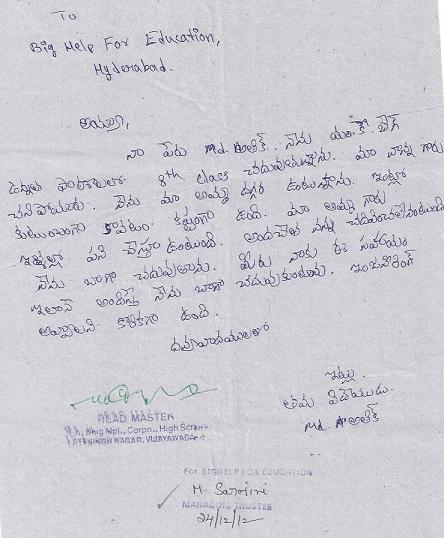 To
Big Help For Education,
Hyderabad.
అయ్యా,
నా పేరు Md. అతీక్. నేను యం. కే. బేగ్
ఉన్నత పాఠశాలలో 8th class చదువుతున్నాను. మా నాన్న గారు
చనిపోయారు. నేను మా అమ్మ దగ్గర ఉంటున్నాను. ఇంట్లో
కుటుంబంగా కావటం కష్టంగా ఉంది. మా అమ్మ గారు
ఇళ్లల్లో పని చేస్తూ ఉంటుంది. అందుచేత నన్ను
నేను బాగా చదువుతాను. మీరు నాకు ఈ సహాయం
ఇలానే అందిస్తే నేను బాగా చదువుకుంటాను. ఇంజనీరింగ్
అవ్వాలని కోరికగా ఉంది.
ధన్యవాదములతో
ఇట్లు.
తమ విధేయుడు.
Md. అతీక్
HEAD MASTER
M.K. Baig Mpl., Corpn., High School
NAGAR, VIJAYAWADA
For BIGHELP FOR EDUCATION
M. Sarojini
MANAGING TRUSTEE
24/12/12